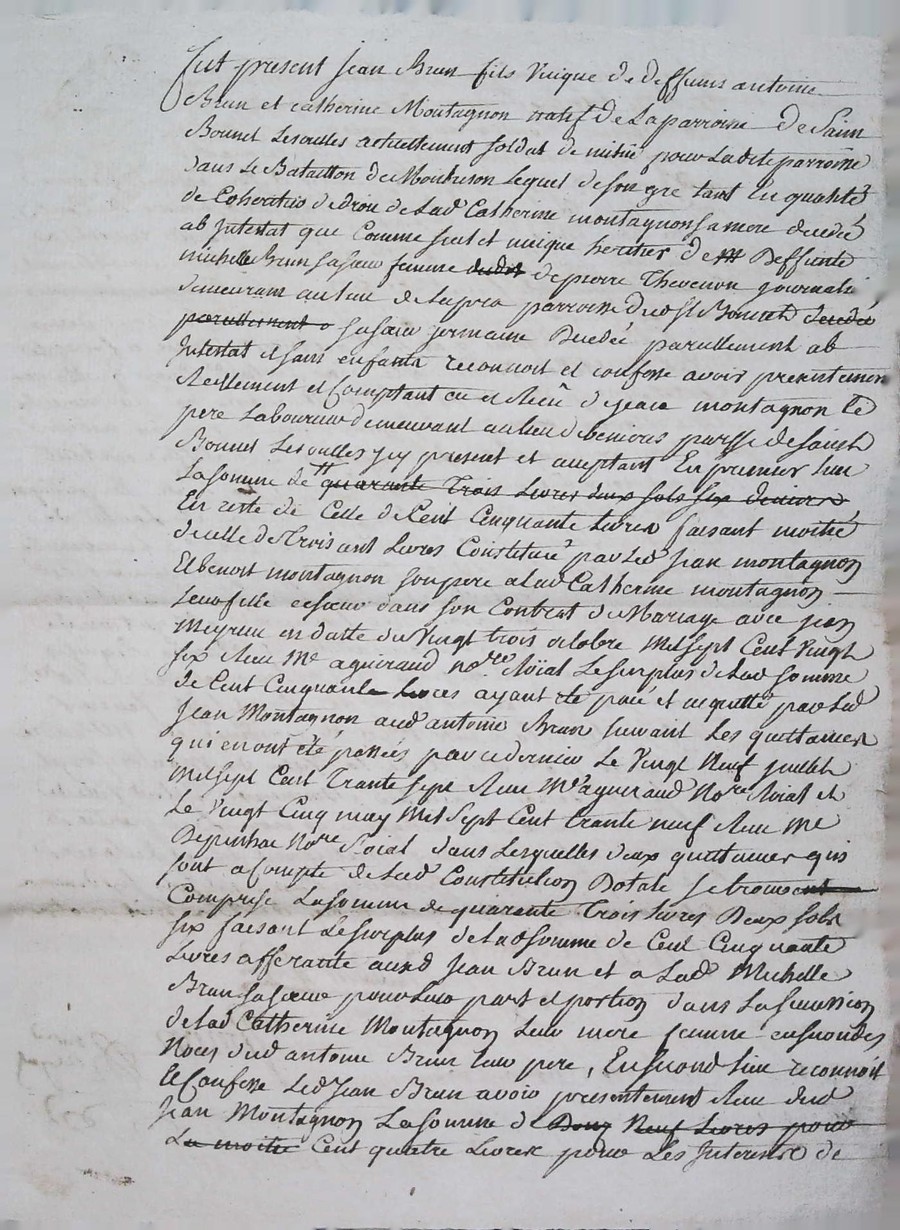 fut present Jean Brun fils unique de deffunts antoine
Brun et catherine Montagnon natif de La parroisse de Saint
Bonnet Lesoulles actuellement soldat de milice pour La dite parroisse
dans Le Bataillon de Montbrison Lequel de son gre tant En qualité
de Coheritier de droit de Lad Catherine montagnon sa mere decedé
ab Intestat que Comme seul et unique heritier de Deffunte
michelle Brun sa soeur femme dudit de pierre Thevenon journalier
demeurant au lieu de parroisse dud St Bonnet decedée
pareillement sa soeur germaine Decedée pareillement ab
Intestat et sans enfants reconnoit et confesse avoir presentement
Reellement et Comptant eu et Receu de jean montagnon Le
pere Laboureur demeurant au lieu de parsse de Saint
Bonnet Lesoulles icy present et aceptant En premier Lieu
La somme de quarante Trois Livres deux sols six deniers
En reste de Celle de Cent Cinquante Livres faisant moitié
de celle de Trois cent Livres Constituée par Led Jean montagnon
Et benoit montagnon son pere a Lad Catherine montagnon
Leur fille et soeur dans son Contrat de Mariage avec jean
Meyrieu en datte du Vingt trois octobre Mil sept Cent Vingt
six Receu Me aguiraud nore Roïal Le surplus de Lad somme
de Cent Cinquante Livres ayant été païé et acquitté par Led
Jean Montagnon aud antoine Brun suivant Les quittances
qui en ont été passées par ce dernier Le Vingt Neuf juillet
Mil sept Cent Trante sept Receu Me aguiraud Nore Roial et
Le Vingt Cinq may Mil sept Cent trante neuf Receu Me
Depinhac Nore Roial dans Lesquelles deux quittances qui
sont a Compte de Lad Constitution Dotale se trouve
Comprise La somme de quarante Trois Livres Deux sols
six faisant Le surplus de Lad somme de Cent Cinquante
Livres afferante aud Jean Brun et a Lad Michelle
Brun sa soeur pour Leur part et portion dans La succession
de Lad Catherine Montagnon Leur mere femme en secondes
Noces dud antoine Brun Leur pere, En second Lieu reconnoit
et Confesse Led Jean Brun avoir presentement Receu dud
Jean Montagnon La somme de Neuf Livres pour
La moitie Cent quatre Livres pour Les Interests de